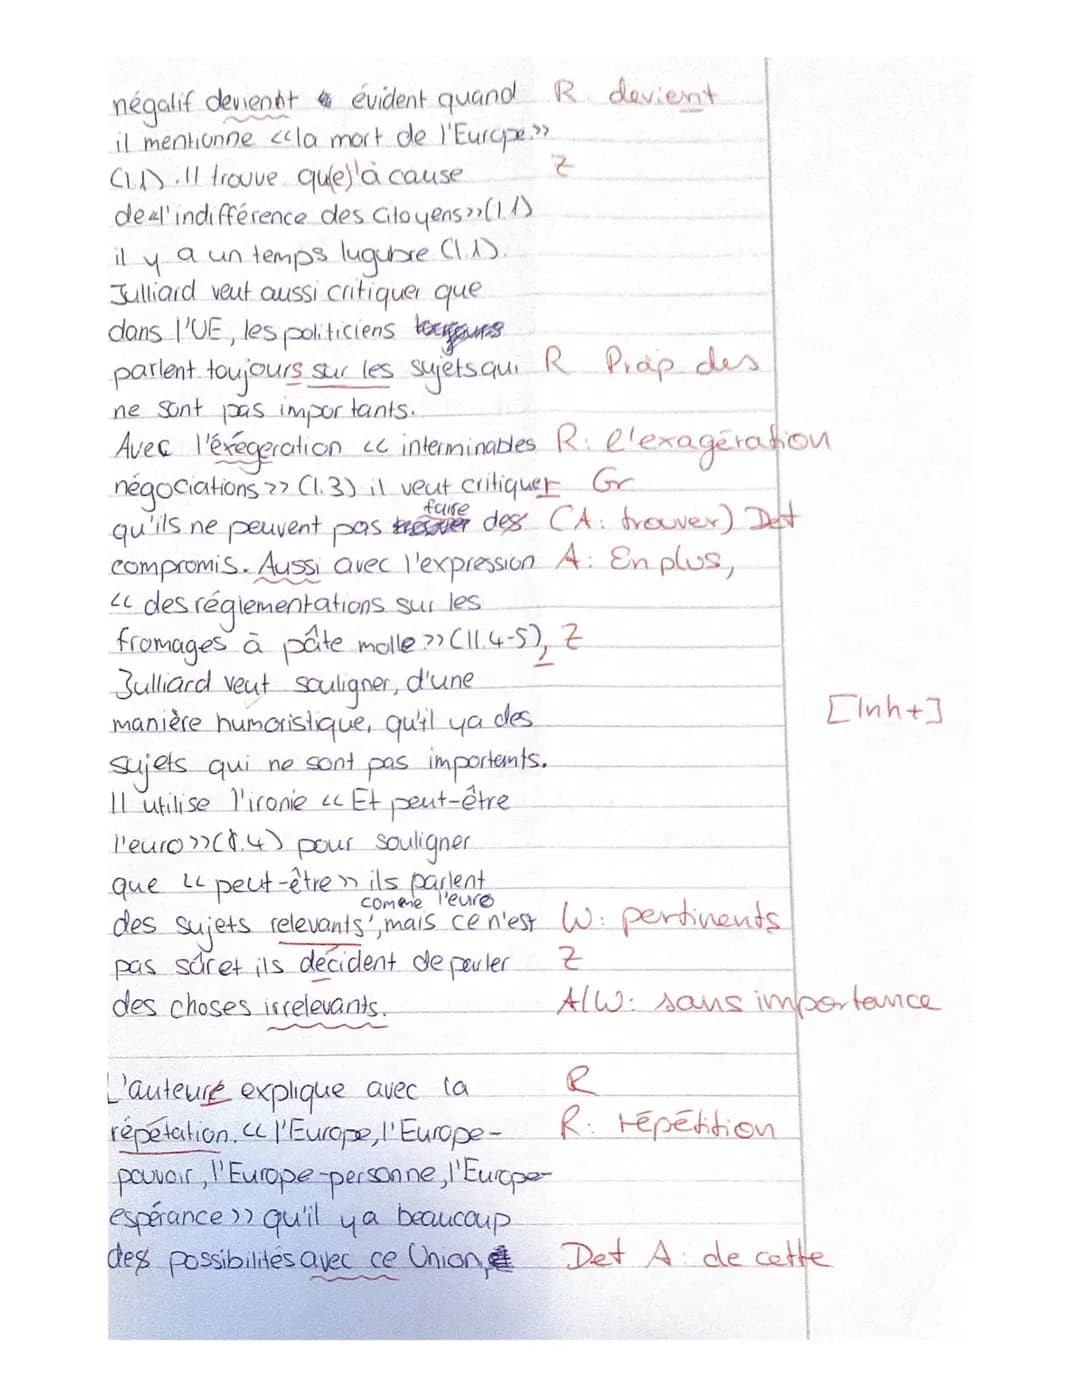 négatif devient évident quand R. devient
il mentionne <<la mort de l'Europe.>>
(l.1). Il trouve qu(e)'à cause Z
de <<l'indifférence des citoyens>> (l.1)
il y a un temps lugubre (l.1).
Julliard veut aussi critiquer que
dans l'UE, les politiciens
parlent toujours sur les sujets qui R Präp des
ne sont pas importants.
Avec l'éxégeration << interminables R: l'exagération
négociations >> (l.3) il veut critiquer Gr
qu'ils ne peuvent pas faire des (A: trouver) Det
compromis. Aussi avec l'expression A: En plus,
<< des réglementations sur les
fromages à pâte molle >> (ll.4-5), Z
Julliard veut souligner, d'une
manière humoristique, qu'il ya des [Inh+]
sujets qui ne sont pas importants.
Il utilise l'ironie << Et peut-être
l'euro >> (l.4) pour souligner
que << peut-être >> ils parlent
des sujets relevants comme l'euro, mais ce n'est W: pertinents
pas sûr et ils décident de parler Z
des choses irrelevants. A/W: sans importance
L'auteure explique avec la R
répétation. << l'Europe, l'Europe- R: répétition
pouvoir, l'Europe-personne, l'Europe-
espérance >> qu'il ya beaucoup
des possibilités avec ce Union, Det A: de cette